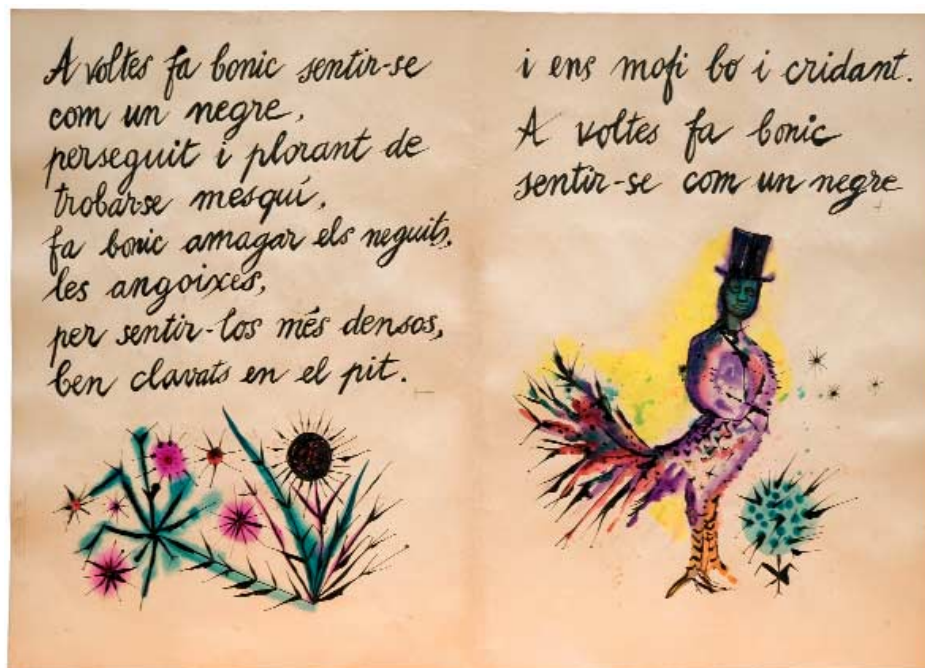 A voltes fa bonic sentir-se
com un negre,
perseguit i plorant de
trobarse mesquí,
fa bonic amagar els neguits,
les angoixes,
per sentir-los més densos,
ben clavats en el pit.
i ens mofi bo i cridant.
A voltes fa bonic
sentir-se com un negre